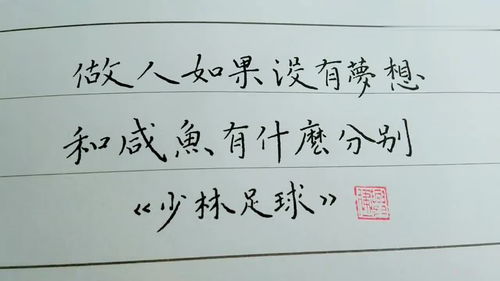 做人如果没有夢想
和咸魚有什麽分别
《少林足球》